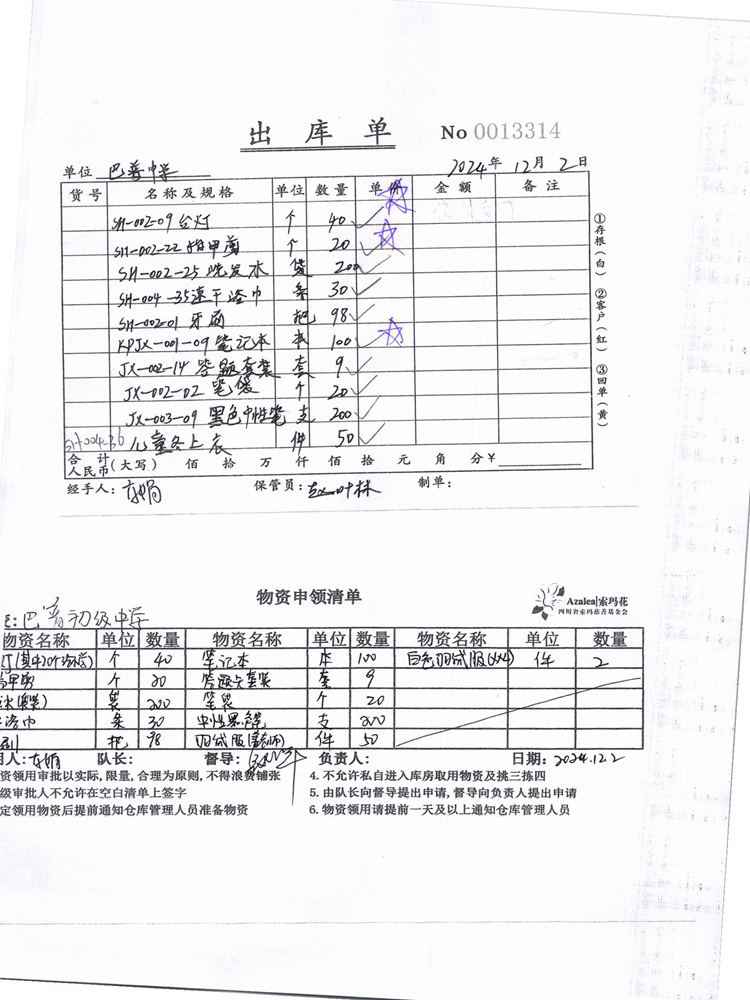 出库单 No 0013314
单位 巴普中学 2024年12月2日
货号 名称及规格 单位 数量 单价 金额 备注
SH-002-09 台灯 个 40
SH-002-22 指甲剪 个 20
SH-002-25 洗发水 袋 200
SH-004-35 速干浴巾 条 30
SH-002-01 牙刷 把 98
KPJX-001-09 笔记本 本 100
JX-002-14 答题套装 套 9
JX-002-02 笔袋 个 20
JX-003-09 黑色中性笔 支 200
SH-004-36 儿童冬上衣 件 50
合计人民币(大写) 佰 拾 万 仟 佰 拾 元 角 分 ¥
经手人: 保管员: 赵叶林 制单:
①存根(白) ②客户(红) ③回单(黄)
物资申领清单
Azalea|索玛花
四川省索玛慈善基金会
巴普初级中学
物资名称 单位 数量 物资名称 单位 数量 物资名称 单位 数量
个 40 笔记本 本 100 白色羽绒服 件 2
个 20 套 9
袋 200 笔袋 个 20
浴巾 条 30 中性黑色笔 支 200
把 98 羽绒服 件 50
用人: 队长: 督导: 负责人: 日期: 2024.12.2
资领用审批以实际,限量,合理为原则,不得浪费铺张 4. 不允许私自进入库房取用物资及挑三拣四
级审批人不允许在空白清单上签字 5. 由队长向督导提出申请,督导向负责人提出申请
定领用物资后提前通知仓库管理人员准备物资 6. 物资领用请提前一天及以上通知仓库管理人员